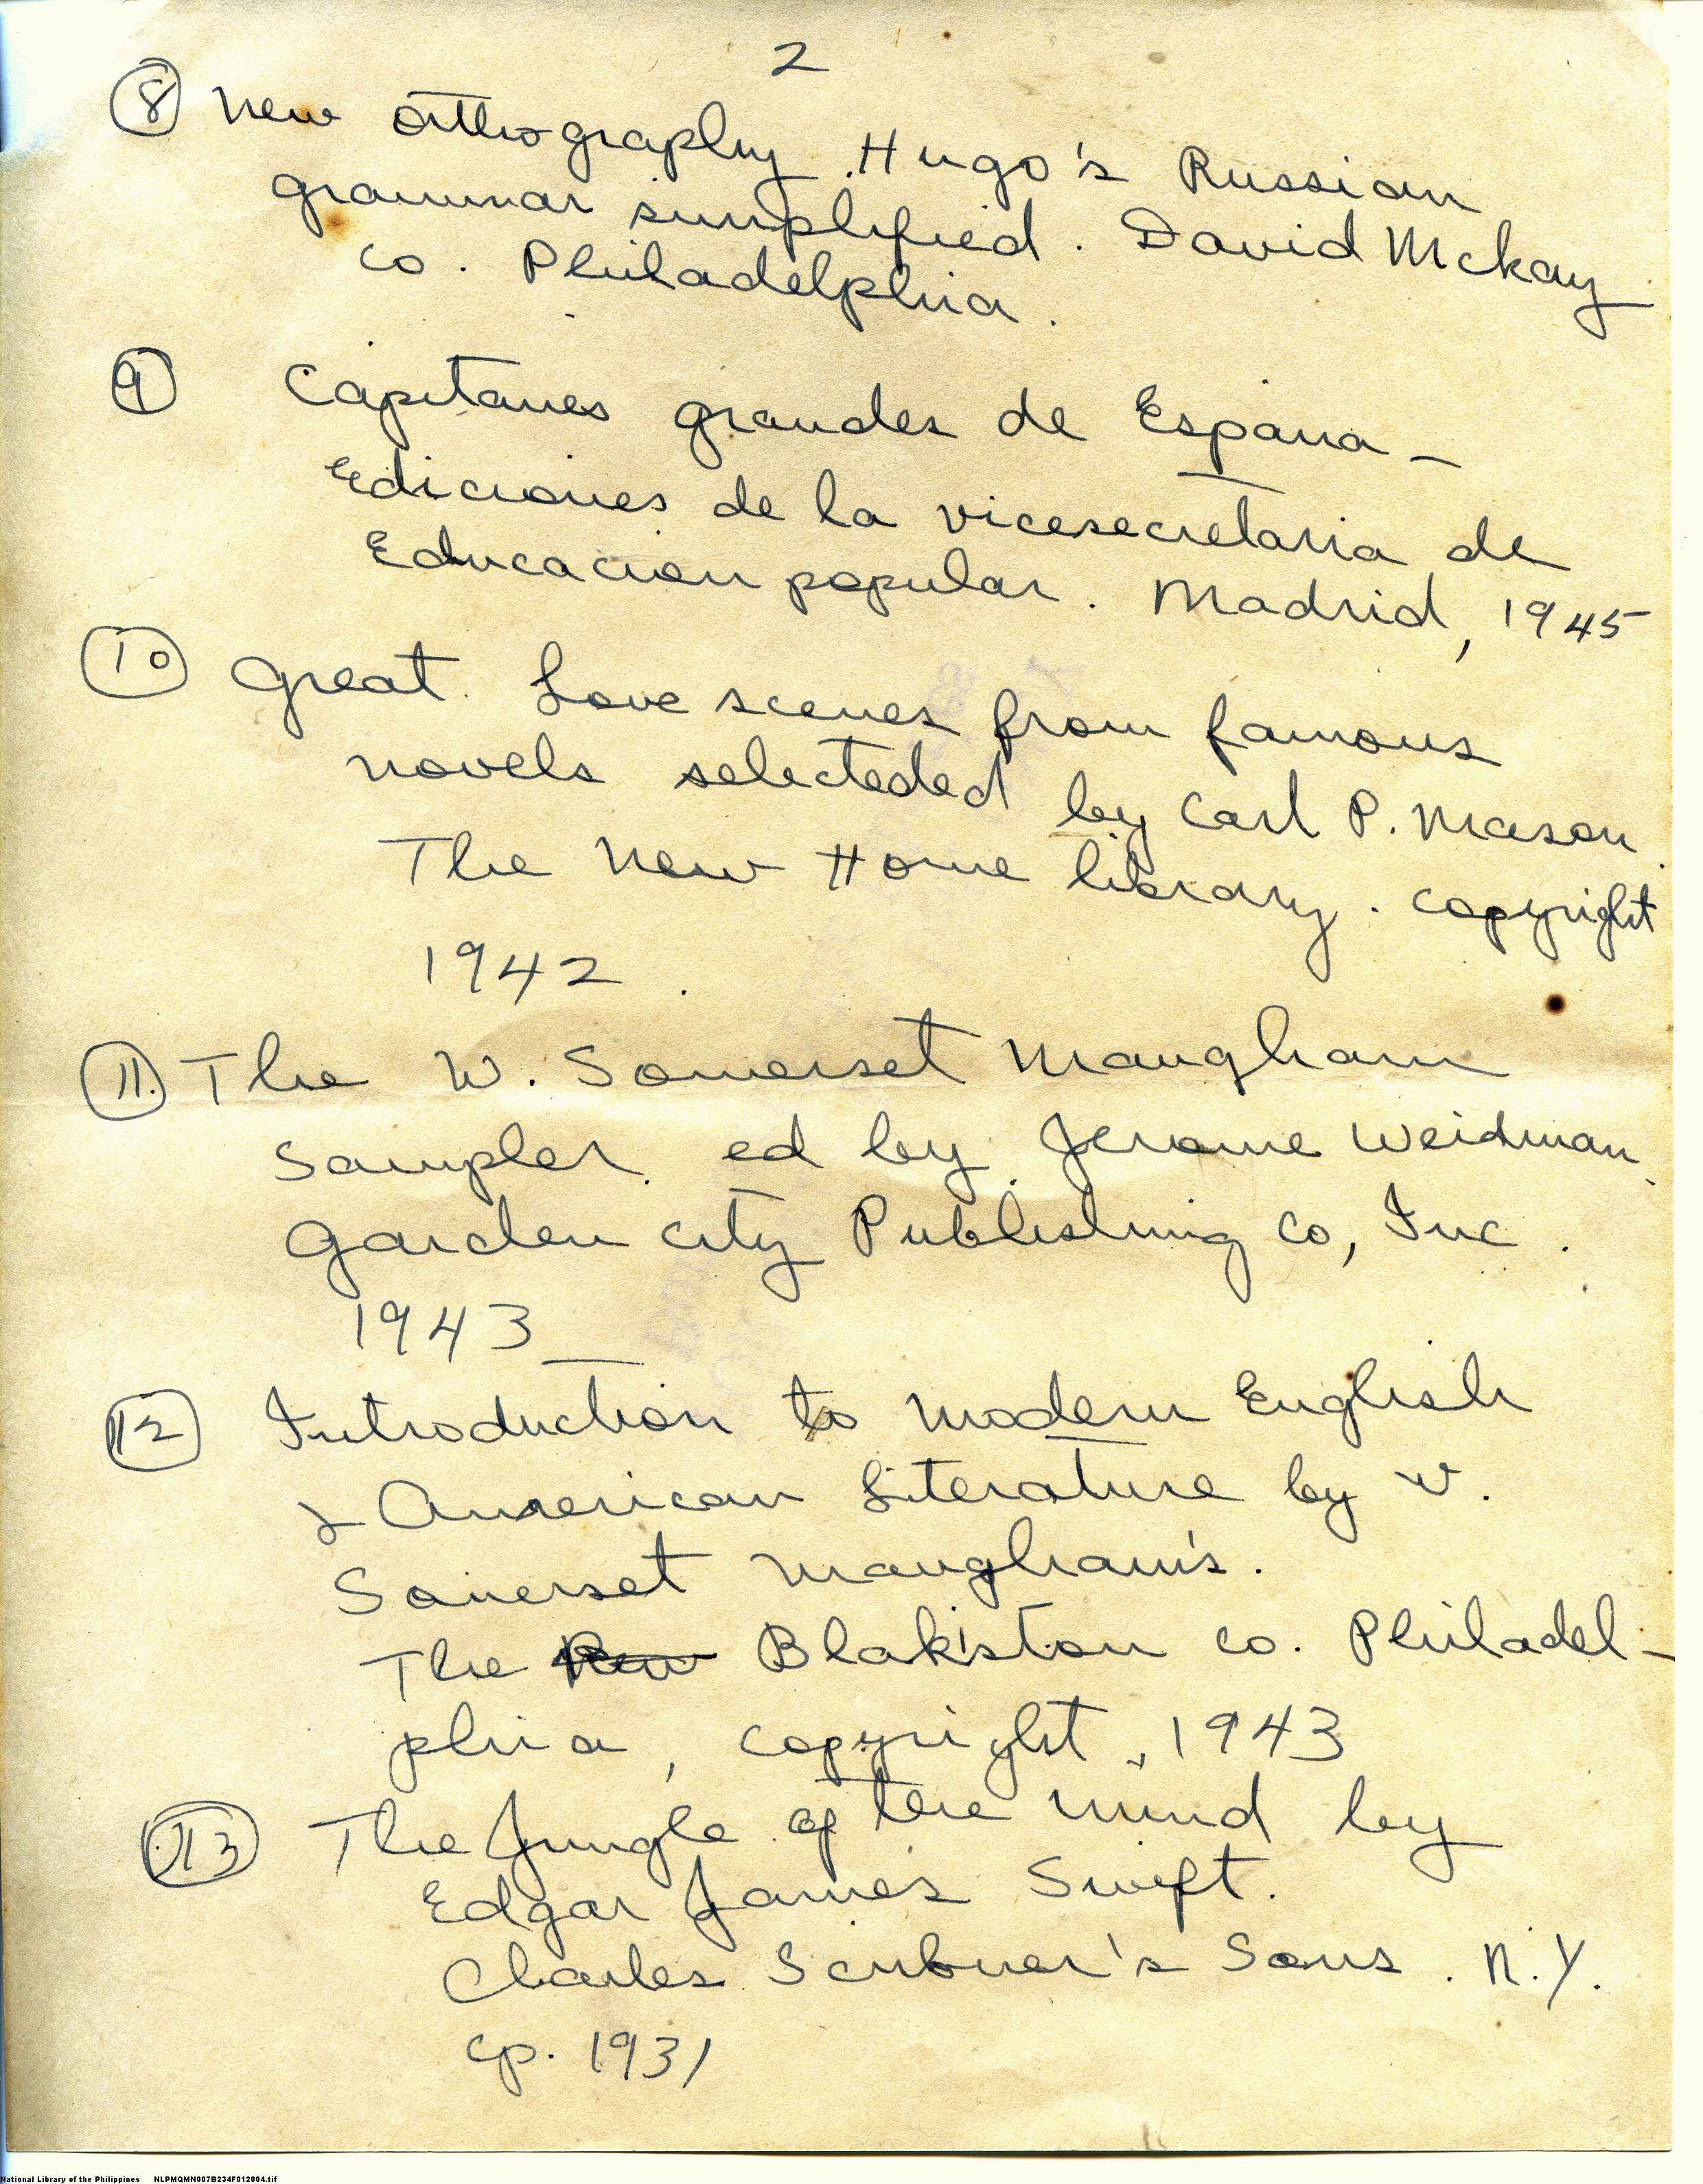 2
8 New Orthography Hugo's Russian
grammar simplified. David McKay
Co. Philadelphia.
9 Capitanes grandes de Espana -
Ediciones de la vicesecretaria de
Educacion popular. Madrid, 1945
10 Great Love scenes from famous
novels selecteded by Carl P. Mason.
The New Home library. copyright
1942.
11. The W. Somerset Maugham
Sampler. ed by Jerome Weidman.
Garden City Publishing Co, Inc.
1943
12 Introduction to Modern English
& American Literature by W.
Somerset Maugham's.
The New Blakiston Co. Philadel-
phia, copyright, 1943
13 The Jungle of the mind by
Edgar James Swift.
Charles Scribner's Sons. N.Y.
cp. 1931
National Library of the Philippines NLPMQMN007B234F012004.tif